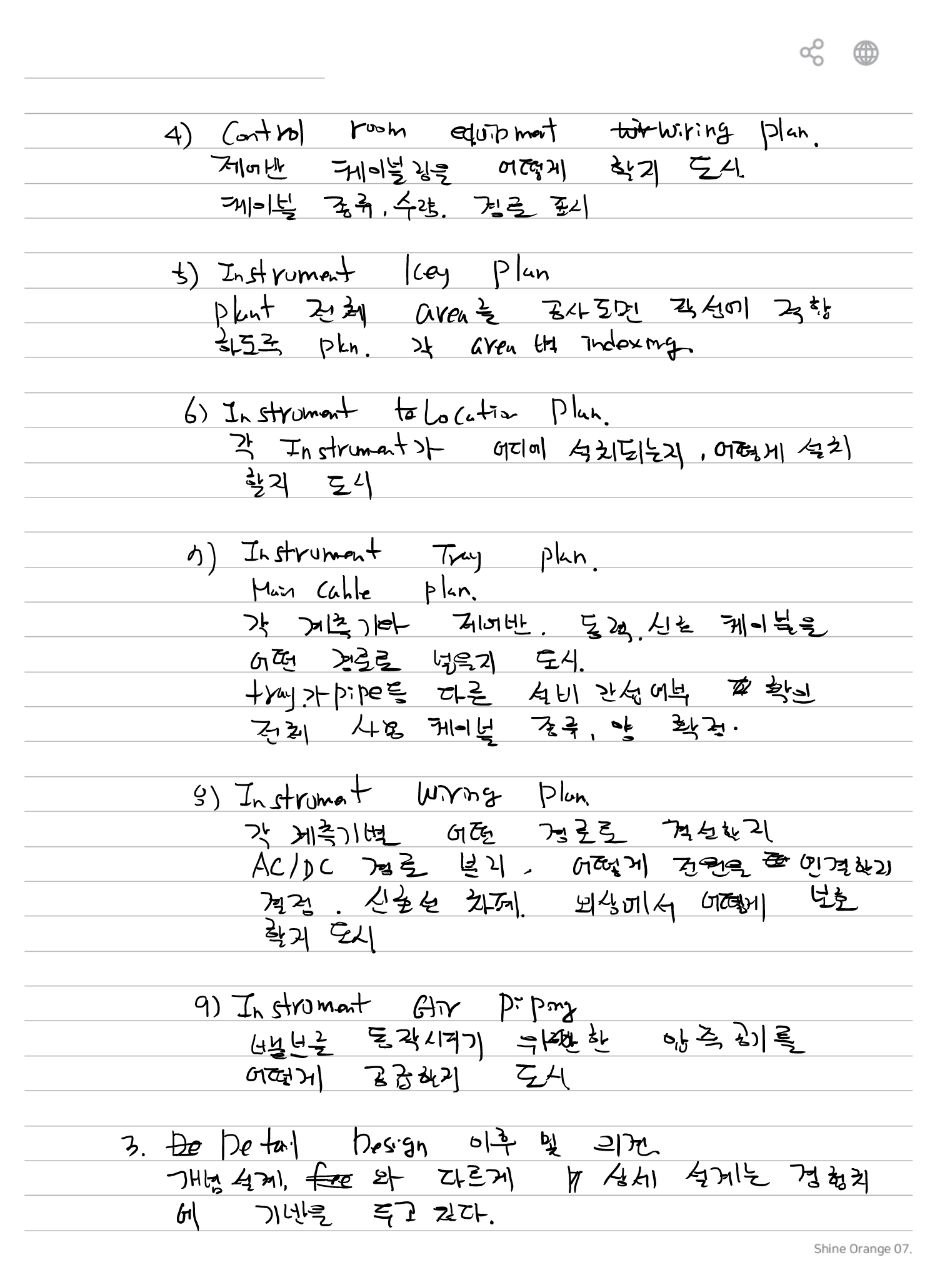 4) Control room equipment wiring plan.
제어반 케이블링을 어떻게 할지 도시.
케이블 종류, 수량. 경로 표시
5) Instrument Key plan
plant 전체 area를 공사도면 작성에 적합
하도록 plan. 각 area 별 indexing.
6) Instrument Location plan.
각 Instrument가 어디에 설치되는지, 어떻게 설치
할지 도시
7) Instrument Tray plan.
Main Cable plan.
각 계측기와 제어반. 동력, 신호 케이블을
어떤 경로로 넣을지 도시.
tray가 pipe등 다른 설비 간섭여부 확인
전체 사용 케이블 종류, 양 확정.
8) Instrument Wiring plan
각 계측기별 어떤 경로로 결선할지
AC/DC 경로 분리, 어떻게 전원을 연결할지
결정. 신호선 차폐. 외상에서 어떻게 보호
할지 도시
9) Instrument Air piping
밸브를 동작시키기 위한 압축공기를
어떻게 공급할지 도시
3. Detail Design 이후 및 의견
개념설계, 와 다르게 상세 설계는 경험치
에 기반을 두고 있다.
Shine Orange 07.